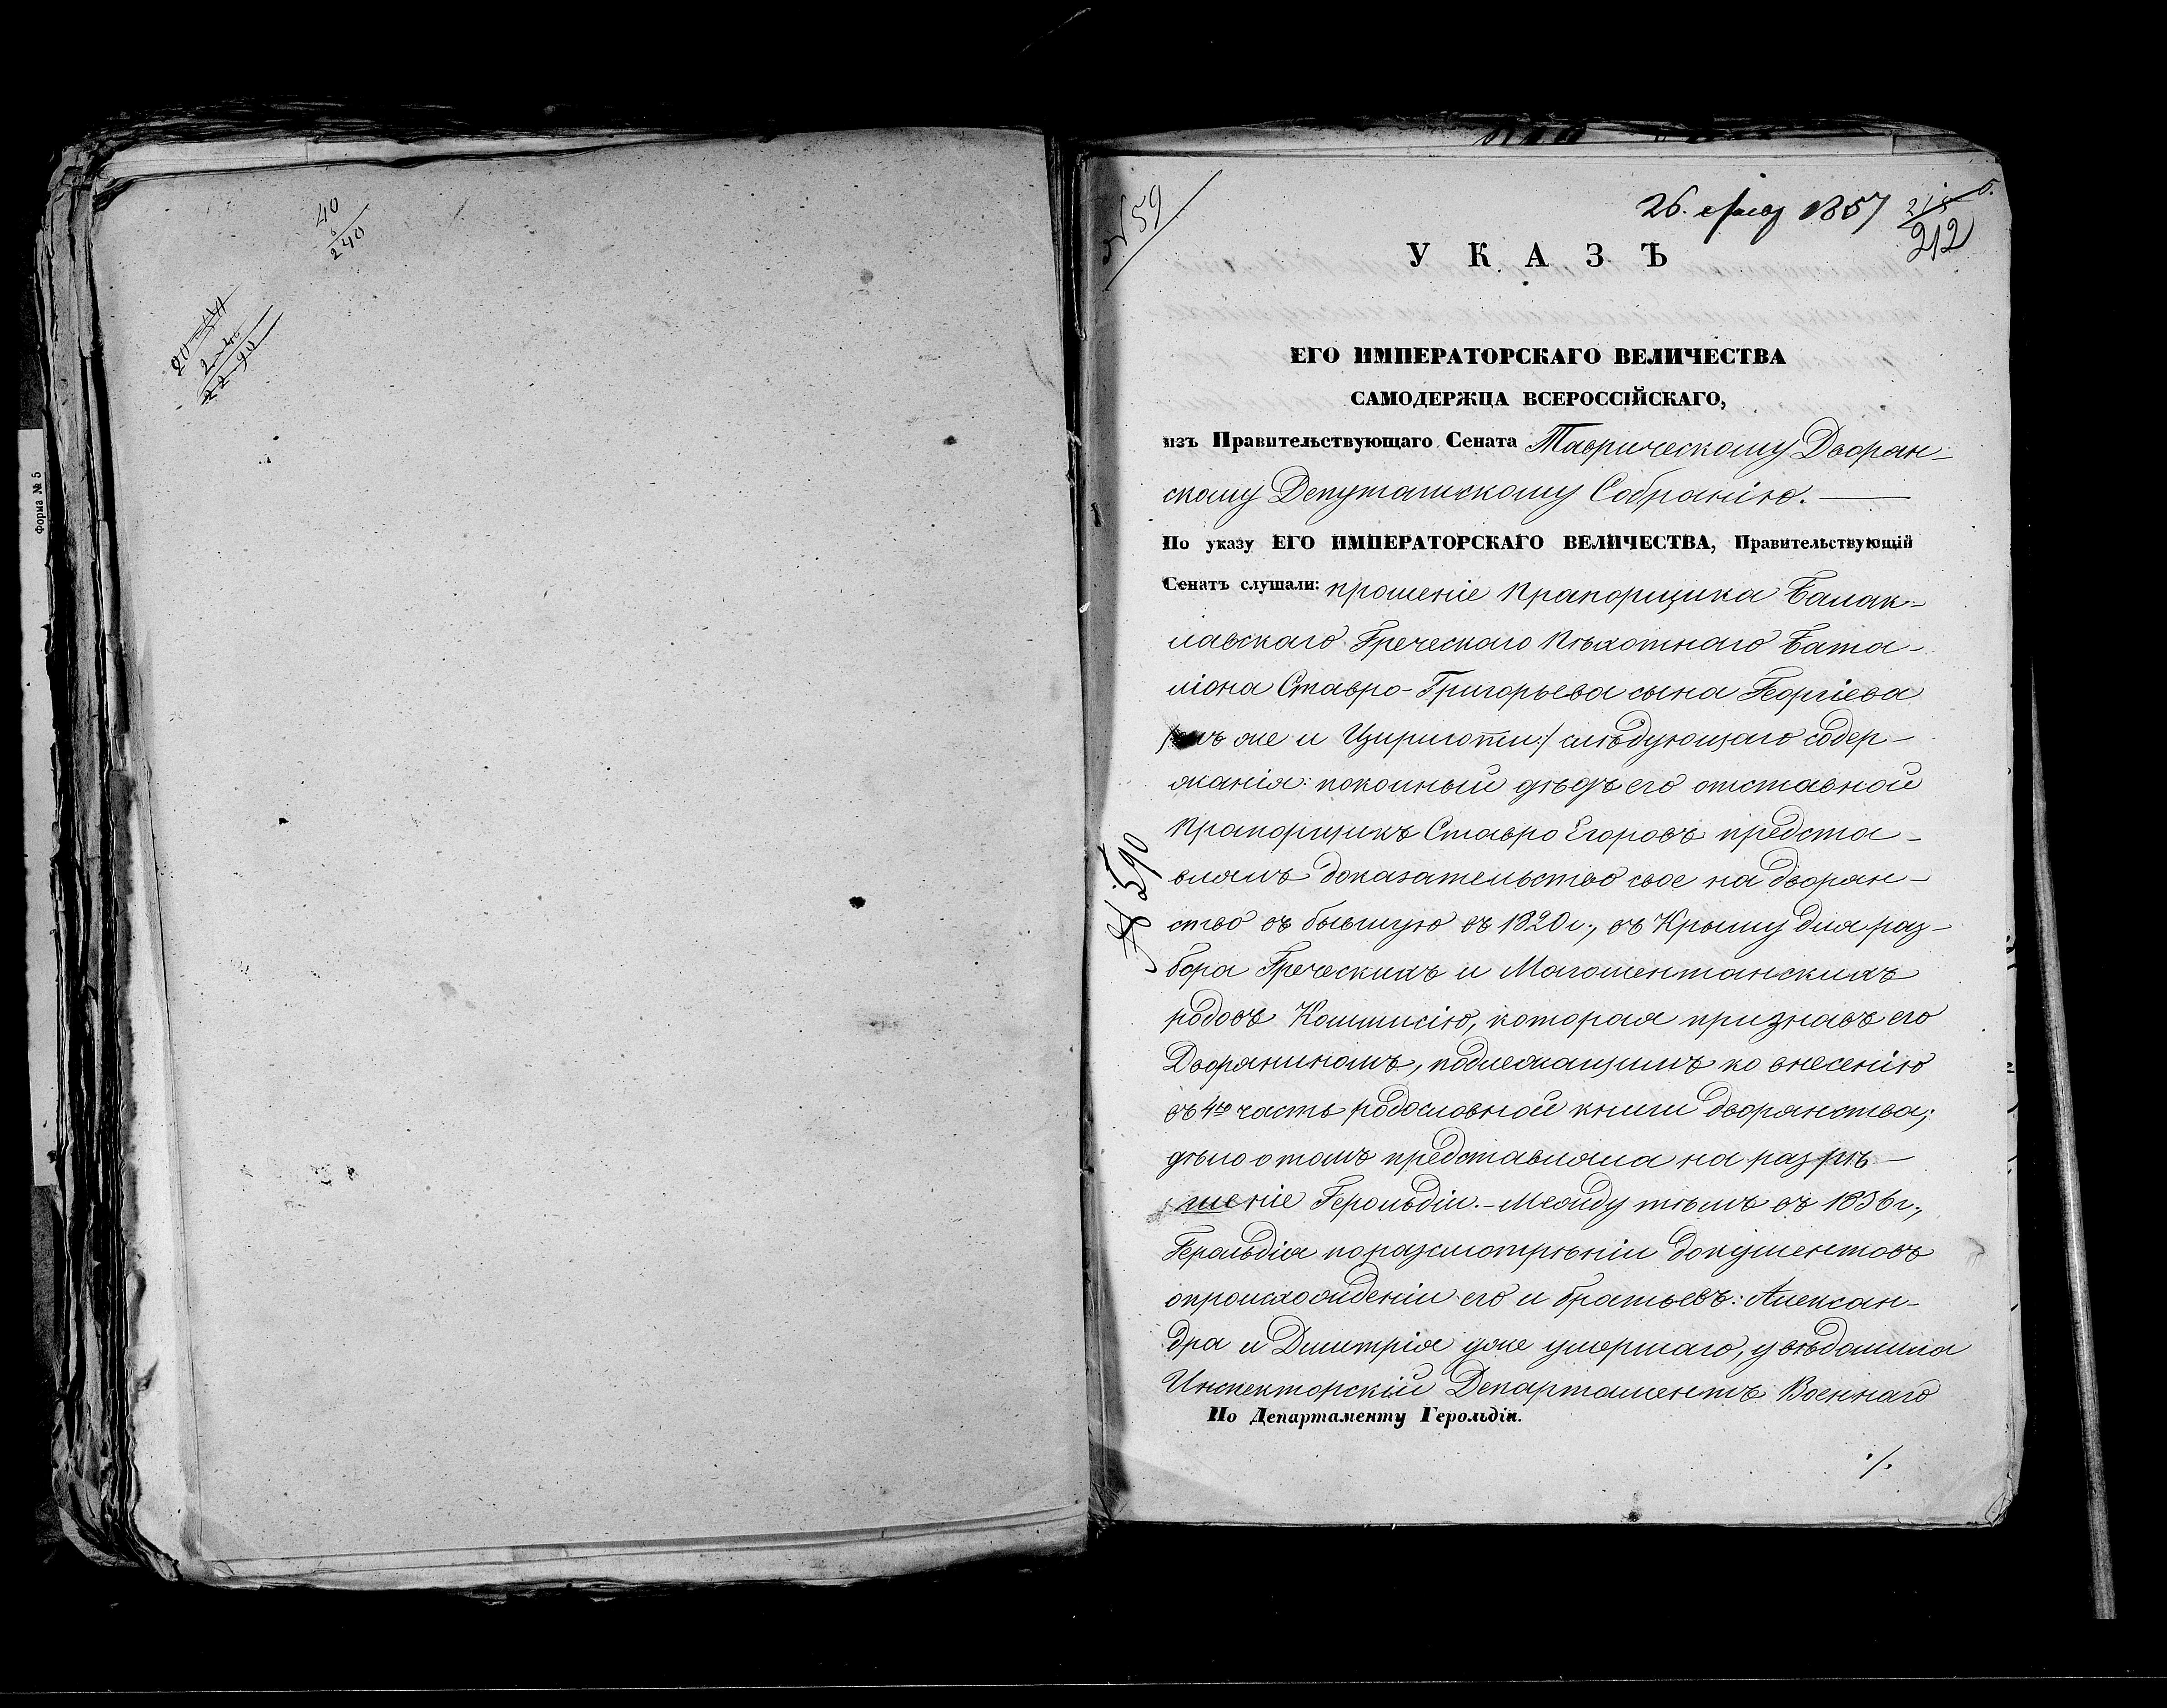 40
240
2240
2290
Форма № 5
№ 59
26. 1857 215
212
У К А З Ъ
ЕГО ИМПЕРАТОРСКАГО ВЕЛИЧЕСТВА
САМОДЕРЖЦА ВСЕРОССІЙСКАГО,
изъ Правительствующаго Сената Таврическому Дворян-
скому Депутатскому Собранію.
По указу ЕГО ИМПЕРАТОРСКАГО ВЕЛИЧЕСТВА, Правительствующій
Сенатъ слушали: прошеніе Прапорщика Балак-
лавскаго Греческаго Пѣхотнаго Бата-
ліона Ставро-Григорьева сына Георгіева
онъ же и Цириготи:/ слѣдующаго содер-
жанія: покойный дѣдъ его отставной
Прапорщикъ Ставро Егоровъ предста-
влялъ доказательство свое на дворян-
ство въ бывшую въ 1820 г., въ Крыму для раз-
бора Греческихъ и Магометанскихъ
родовъ Коммисію, которая признавъ его
Дворяниномъ, подлежащимъ ко внесенію
въ 4ю часть родословной книги дворянства;
дѣло о томъ представляла на разрѣ-
шеніе Герольдіи.- Между тѣмъ въ 1836 г.,
Герольдія по разсмотрѣніи документовъ
о происхожденіи его и братьевъ: Алексан-
дра и Димитрія уже умершаго, увѣдомила
Инспекторскій Департаментъ Военнаго
По Департаменту Герольдіи.
./.
№ 590